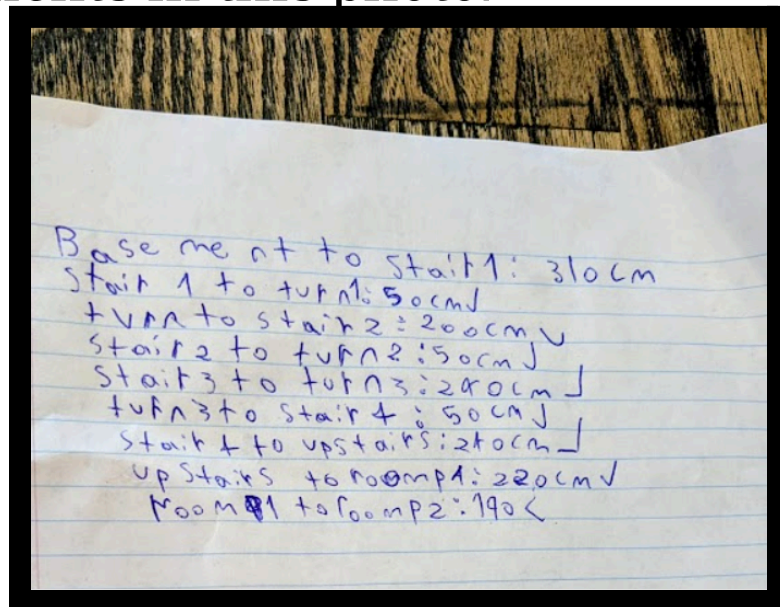 Basement to stair1: 310cm
stair 1 to turn1: 50cm
turn to stair2: 200cm
stair2 to turn2: 50cm
Stair3 to turn3: cm
turn3 to stair 4: 50cm
stair 4 to upstairs: cm
upstairs to roomp1: 220cm
room 1 to roomp2: 190